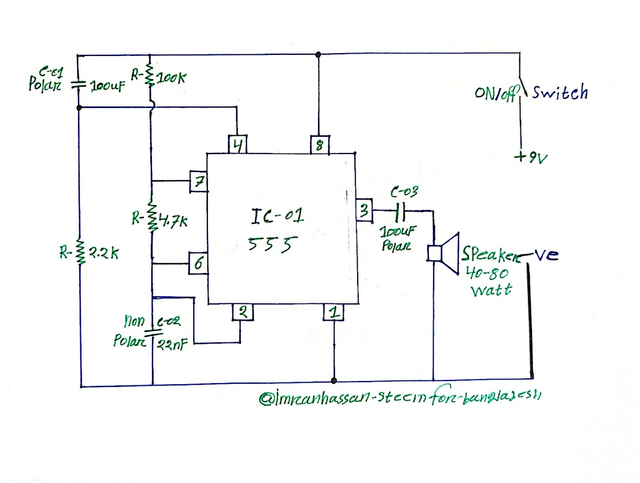 C-01
Polar
100uF
R-
100K
ON/off Switch
+9V
4
8
7
IC-01
555
3
C-03
100uF
Polar
R-
4.7K
R-
2.2K
6
Speaker
40-80
Watt
-ve
Non
Polar
C-02
22nF
2
1
@imranhassan-steem for-bangladesh